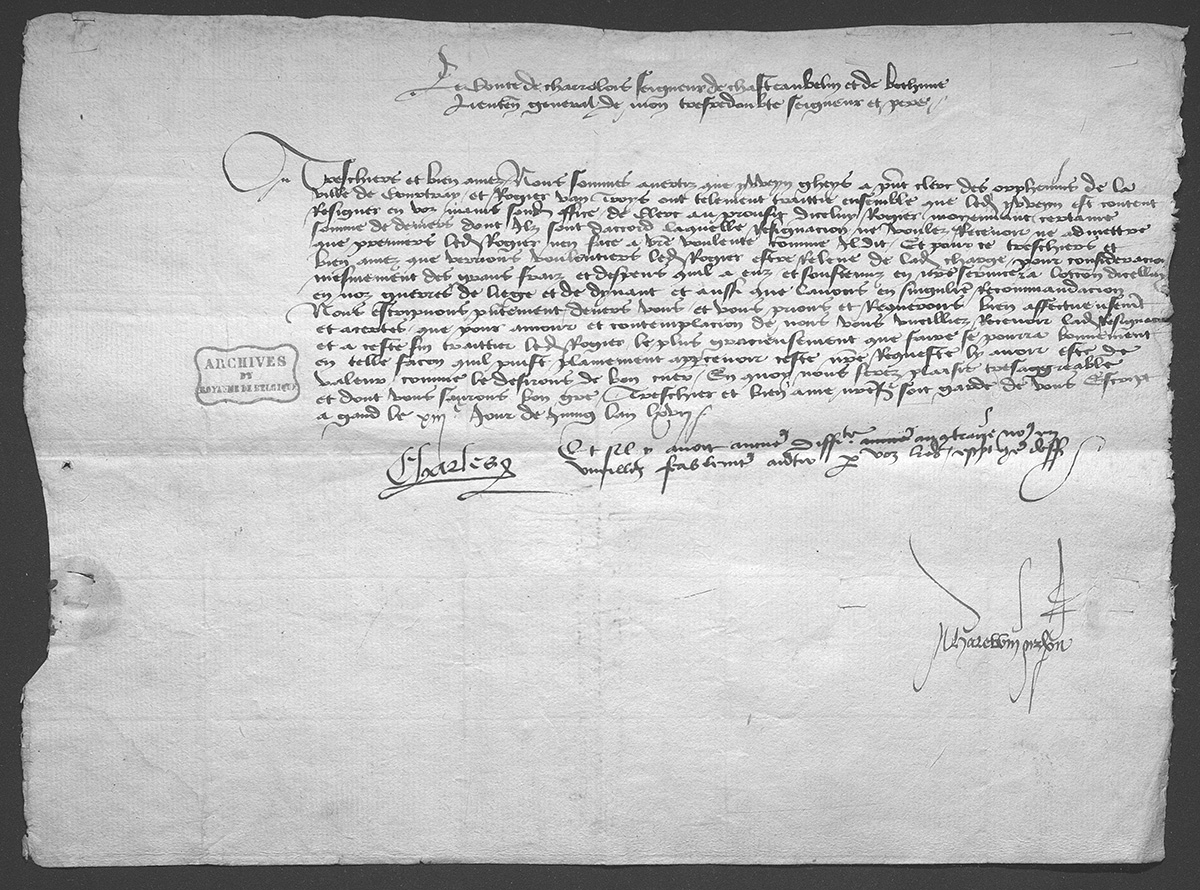 Le conte de charrolois seigneur de chasteaubelin et de bethune
Lieuten general de mon tresredoubte seigneur et pere
Treschiers et bien amez Nous sommes avertiz que yweyn gheys a pnt clerc des orphenins de la
ville de Courtray et Rogier van ont telement traittie ensemble que led yweyn est content
Resigner en voz mains sond office de clerc au proufit dicelui Rogier moyennant certaine
somme de deniers dont Ilz sont daccord laquelle Resignacion ne voulez Recevoir ne admettre
que premiers led Rogier nen face a vre voulente comme Il dit Et pour ce treschiers et
bien amez que verrions voulentiers led Rogier estre Releve de lad charge pour consideracion
mesmement des grans fraiz et despens quil a euz et soustenuz en nre service a dicellui
en noz guerres de liege et de dynant et aussi que lavons en singuliere Recommandacion
Nous escripvons pntement devers vous et vous prions et Requerons bien affectueusemt
et acertes que pour amour et contemplacion de nous vous vueilliez Recevoir lad Resignacion
et a ceste fin traittier led Rogier le plus gracieusement que faire se pourra bonnement
en telle facon quil puist plainement appercevoir ceste nre Requeste lui avoir este de
valeur comme le desirons de bon cuer En quoy nous ferez plaisir tresaggreable
et dont vous saurons bon gre Treschiers et bien amez nre sr soit garde de vous Escript
a gand le xiiij Jour de Juing lan lxvij
ARCHIVES
DU
ROYAUME DE BELGIQUE
Et sil y avoit aucune au contraire
Charles